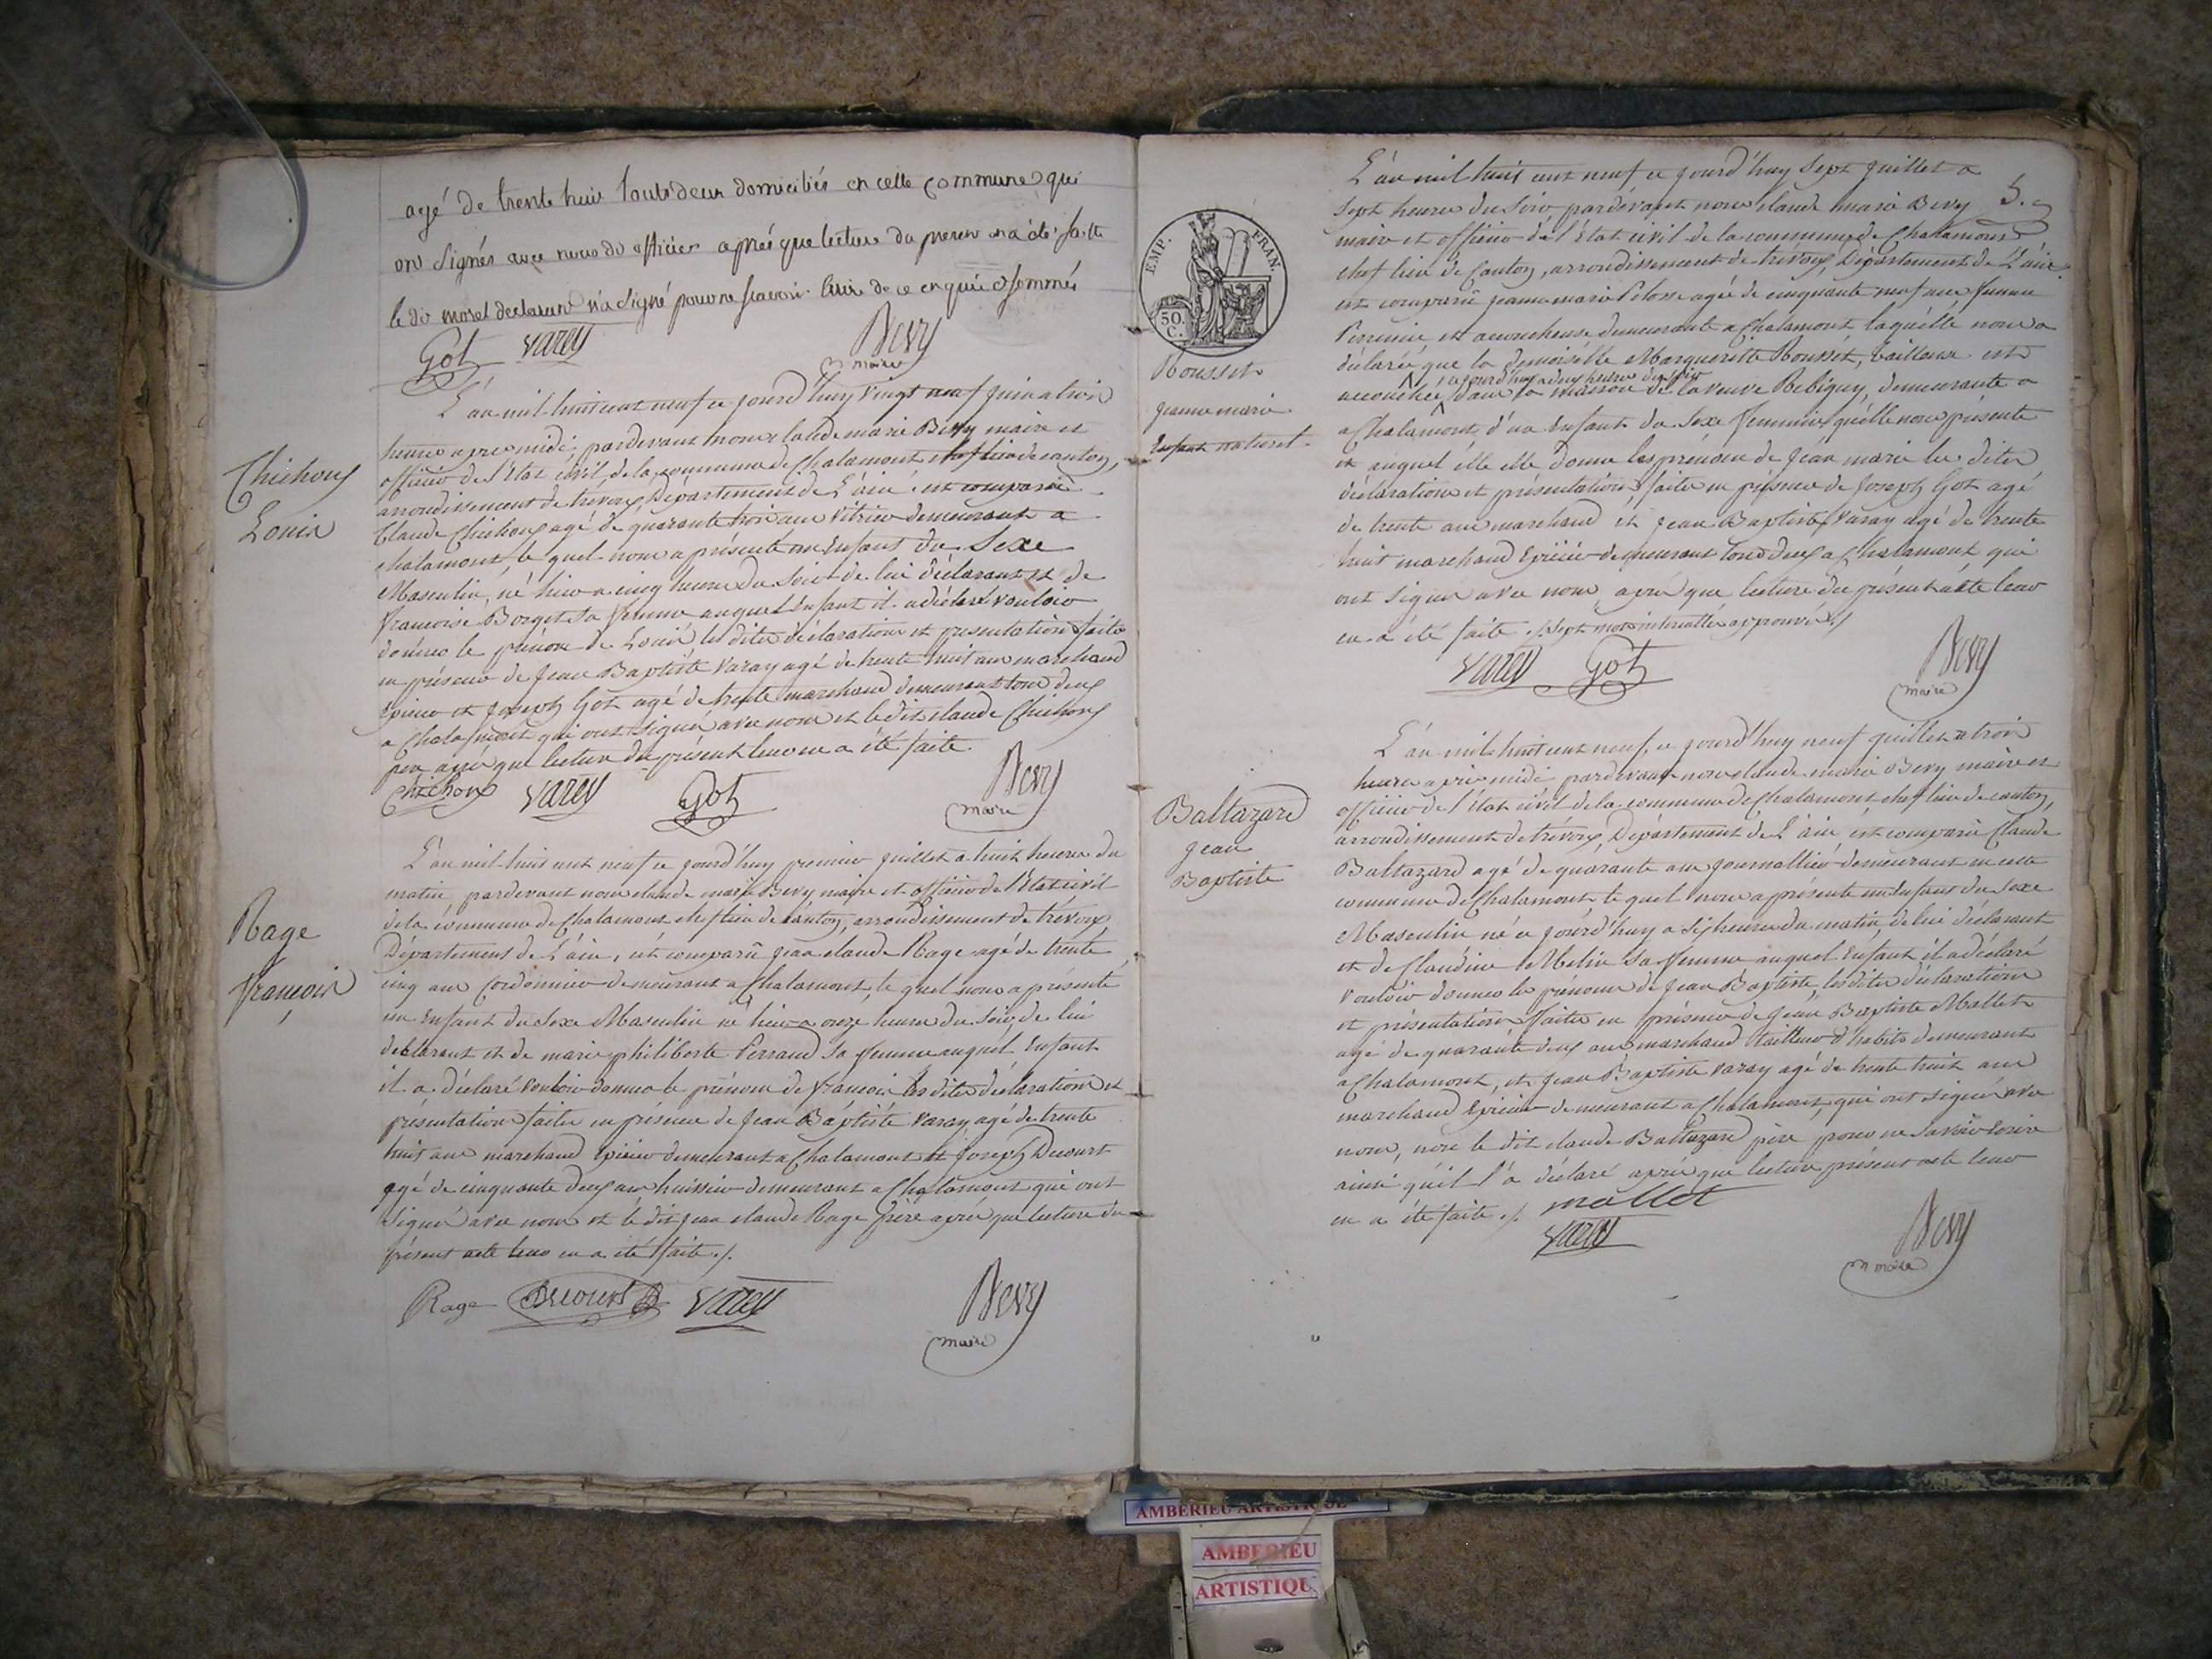 agé de trente huit touts deux domiciliés en cette commune qui
ont signés avec nous dit officier après que lecture du present en a été faitte
le dit morel declarant n'a signé pour ne scavoir de ce enquis et sommés
Got varey Bevy
maire
Chichoux
Louis
L'an mil huit cent neuf ce jourd'huy vingt neuf juin a trois
heures apres midi, pardevant nous claude marie Bevy maire et
officier de l'état civil de la commune de Chalamont chef lieu de canton,
arrondissement de trévoux, Département de L'ain est comparû
Claude Chichoux agé de quarante trois ans vitrier demeurant a
chalamont, le quel nous a présenté un Enfant du Sexe
Masculin, né hier a cinq heures du Soir de lui déclarant et de
francoise Borget sa femme auquel Enfant il a déclaré vouloir
donner le prénom de Louis les dites déclarations et presentation faites
en présence de Jean Baptiste varay agé de trente huit ans marchand
Epicier et Joseph Got agé de trente marchand demeurant tous deux
a Chalamont qui ont signé avec nous et le dit claude Chichoux
pere après que lecture du présent leur en a été faite.
Chichoux varey Got Bevy
maire
Rage
françois
L'an mil huit cent neuf ce jourd'huy premier juillet a huit heures du
matin, pardevant nous claude marie Bevy maire et officier de l'état civil
de la commune de Chalamont chef lieu de canton, arrondissement de trévoux,
Département de L'ain, est comparû jean claude Rage agé de trente
cinq ans Cordonnier demeurant a Chalamont, le quel nous a présenté
un Enfant du Sexe Masculin né hier a onze heures du Soir, de lui
déclarant et de marie philiberte Perraud sa femme auquel Enfant
il a déclaré vouloir donner le prénom de françois les dites déclarations et
présentation faites en présence de Jean Baptiste varay agé de trente
huit ans marchand Epicier demeurant a Chalamont et Joseph Decourt
agé de cinquante deux ans huissier demeurant a Chalamont qui ont
signé avec nous et le dit jean claude Rage père après que lecture du
présent acte leur en a été faite ./.
Rage Decourt varey Bevy
maire
5.
EMP. FRAN.
50.
C.
Rousset
jeanne marie
Enfant naturel.
L'an mil huit cent neuf ce jourd'huy Sept juillet a
Sept heures du Soir, pardevant nous claude marie Bevy
maire et officier de l'état civil de la commune de Chalamont
chef lieu de Canton, arrondissement de trévoux, Département de L'ain
est comparûe jeanne marie Pelosse agée de cinquante neuf ans femme
Perrusset accoucheuse demeurante a Chalamont, laquelle nous a
déclarée que la demoiselle Marguerite Rousset, tailleuse est
ce jourd'huy a deux heures du soir
accouchée dans la maison de la veuve Rebiguy, demeurante a
a Chalamont, d'un Enfant du Sexe féminin qu'elle nous présente
et auquel elle elle donne les prénoms de Jean marie les dites
déclarations et présentation, faites en présence de Joseph Got agé
de trente ans marchand et Jean Baptiste varay agé de trente
huit marchand Epicier demeurant tous deux a Chalamont qui
ont signé avec nous, après que lecture du présent acte leur
en a été faite ./. Sept mots interattés approuvés
varey Got Bevy
maire
Baltazard
jean
Baptiste
L'an mil huit cent neuf, ce jourd'huy neuf juillet a trois
heures apres midi pardevant nous claude marie Bevy maire et
officier de l'état civil de la commune de Chalamont chef lieu de canton,
arrondissement de trévoux, Département de L'ain, est comparû Claude
Baltazard agé de quarante ans journallier demeurant en cette
commune de Chalamont le quel nous a présenté un Enfant du Sexe
Masculin né ce jourd'huy a Six heures du matin, de lui déclarant
et de Claudine Melin sa femme auquel Enfant il a déclaré
vouloir donner les prénoms de Jean Baptiste, les dites déclarations
et présentation faites en présence de Jean Baptiste Mallet
agé de quarante deux ans marchand tailleur d'habits demeurant
a Chalamont, et Jean Baptiste varay agé de trente huit ans
marchand Epicier demeurant a Chalamont, qui ont signé avec
nous, non le dit claude Baltazard père pour ne savoir Ecrire
ainsi qu'il l'a déclaré après que lecture présent acte leur
en a été faite ./. mallet
varey Bevy
maire
AMBERIEU ARTISTIQUE
AMBERIEU
ARTISTIQU